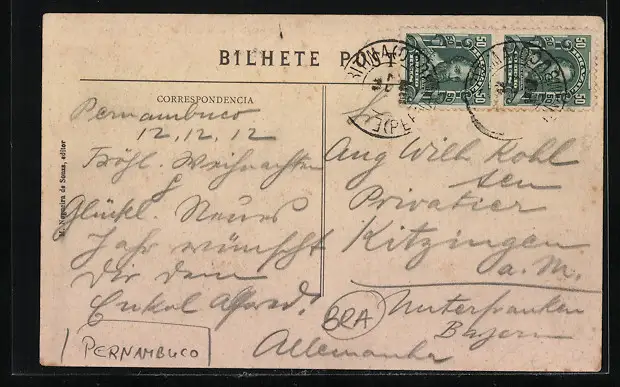 BILHETE POST
CORRESPONDENCIA
M. Nogueira de Souza, editor
Pernambuco
12, 12, 12
Fröhl. Weihnachten
&
Glückl. Neues
Jahr wünscht
Dir dein
Enkel Alfred!
PERNAMBUCO
50 50
50 50
Sr.
Aug Wilh Kohl
sen
Privatier
Kitzingen
a. M.
Unterfranken
Bayern
Allemanha
BRA